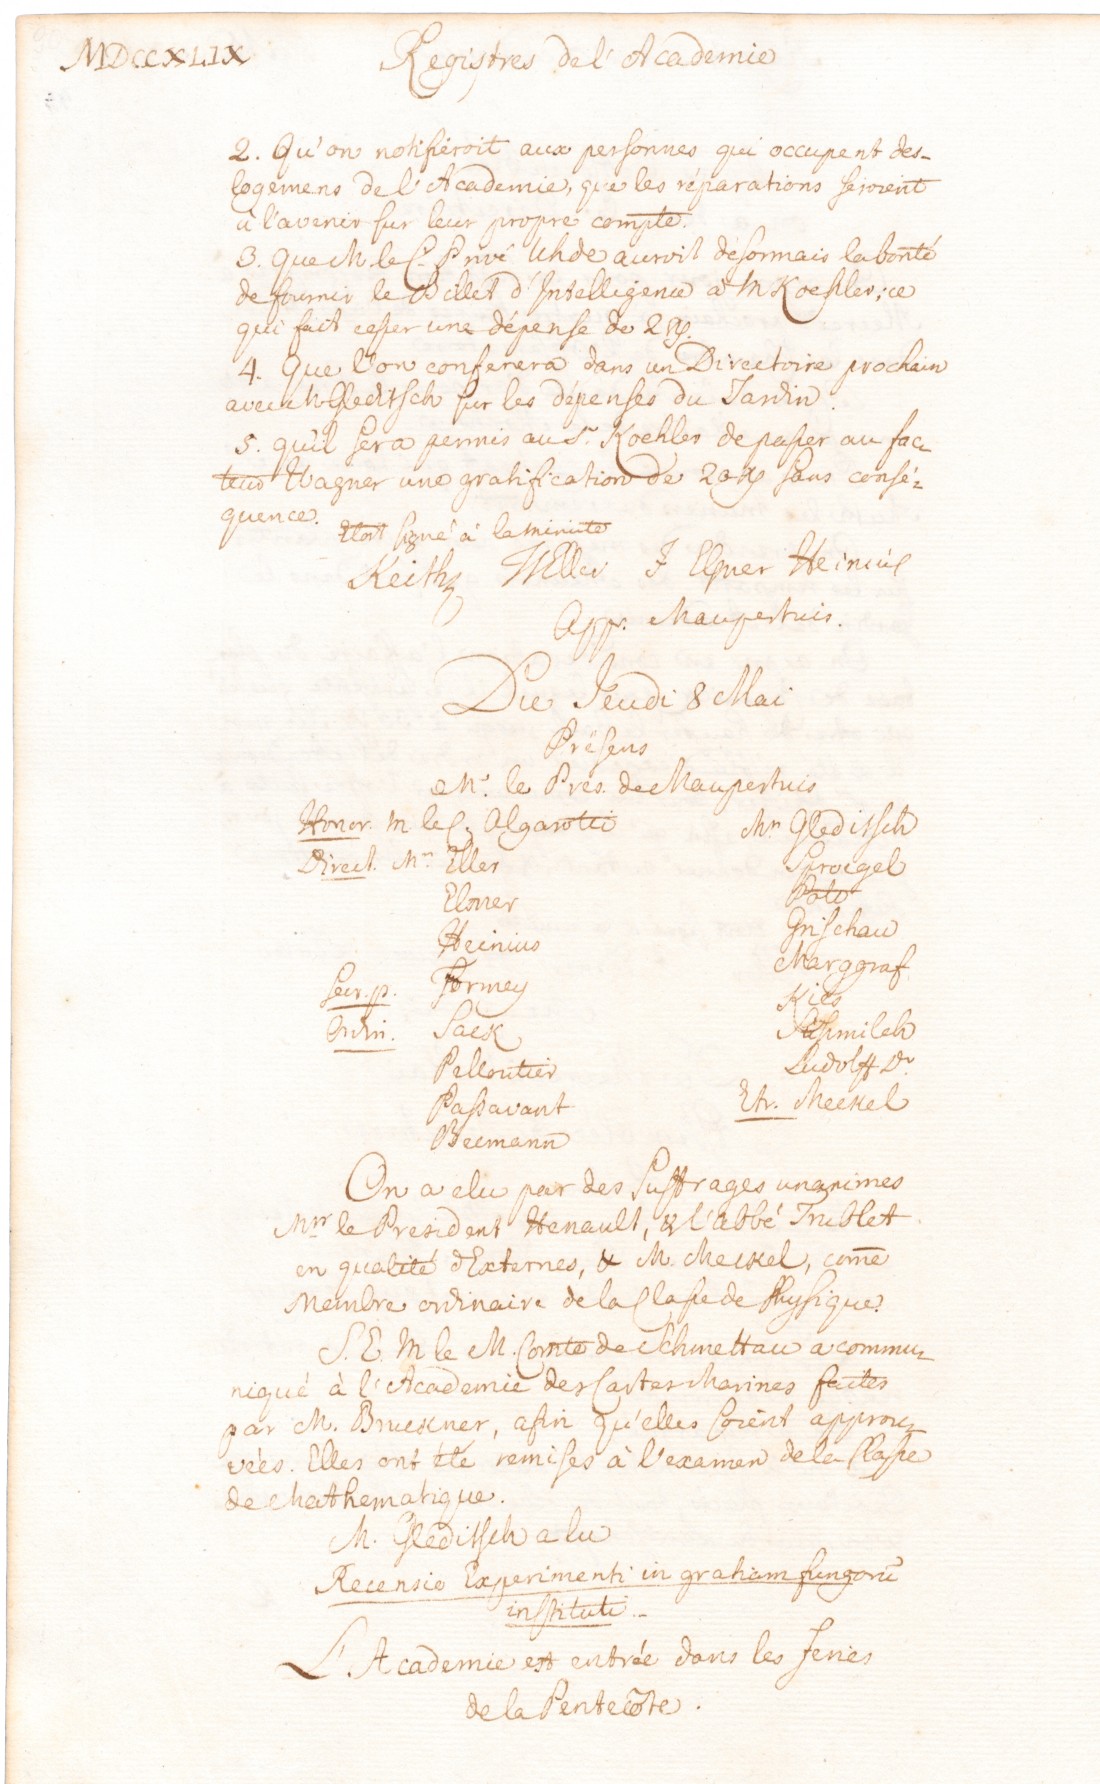 MDCCXLIX
Registres de l'Academie
2. Qu'on notifieroit aux personnes qui occupent des-
logemens de l'Academie, que les réparations seroient
à l'avenir sur leur propre compte.
3. Que M le C. Privé Uhde auroit désormais la bonté
de fournir le Billet d'Intelligence à M Koehler; ce
qui fait cesser une dépense de 2
4. Que l'on conferera dans un Directoire prochain
avec M Gleditsch sur les dépenses du Jardin.
5. qu'il sera permis au Sr. Koehler de passer au fac-
teur Wagner une gratification de 20 sans consé-
quence.
Etoit signé à la minute
Keith Eller J Elsner Heinius
App. Maupertuis.
Du Jeudi 8 Mai
Présens
Mr. le Prés. de Maupertuis
Honor. M. le C. Algarotti
Mrs Gleditsch
Direct. Mrs Eller
Sproegel
Elsner
Pott
Heinius
Grischau
Marggraf
Secr. p. Formey
Kies
Ordin. Sack
Süssmilch
Pelloutier
Ludolff Dr.
Passavant
Etr. Meckel
Becmann
On a elu par des Suffrages unanimes
Mrs le President Henault, & l'abbé Trublet
en qualité d'Externes, & M. Meckel, come
Membre ordinaire de la Classe de Physique.
S. E. M le M. Comte de Schmettau a commu-
niqué à l'Academie des Cartes Marines faites
par M. Bruckner, afin qu'elles soient approu-
vées. Elles ont été remises à l'examen de la Classe
de Mathematique.
M. Gleditsch a lu
Recensio Experimenti in gratiam fungorū
instituti.
L'Academie est entrée dans les feries
de la Pentecôte.